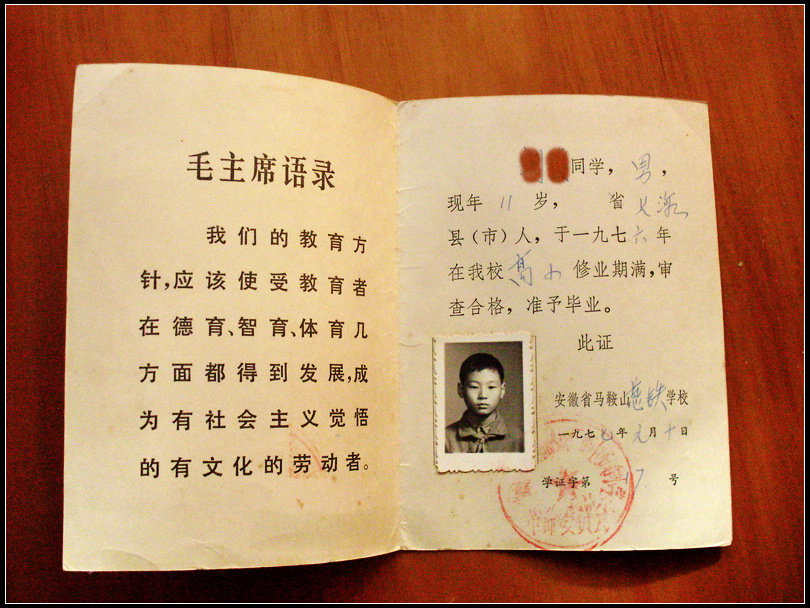 毛主席语录
我们的教育方
针,应该使受教育者
在德育、智育、体育几
方面都得到发展,成
为有社会主义觉悟
的有文化的劳动者。
同学，男，
现年 11 岁， 省上海
县（市）人，于一九七六年
在我校高小修业期满,审
查合格，准予毕业。
此证
安徽省马鞍山慈铁学校
一九七七年元月十日
学证字第 号